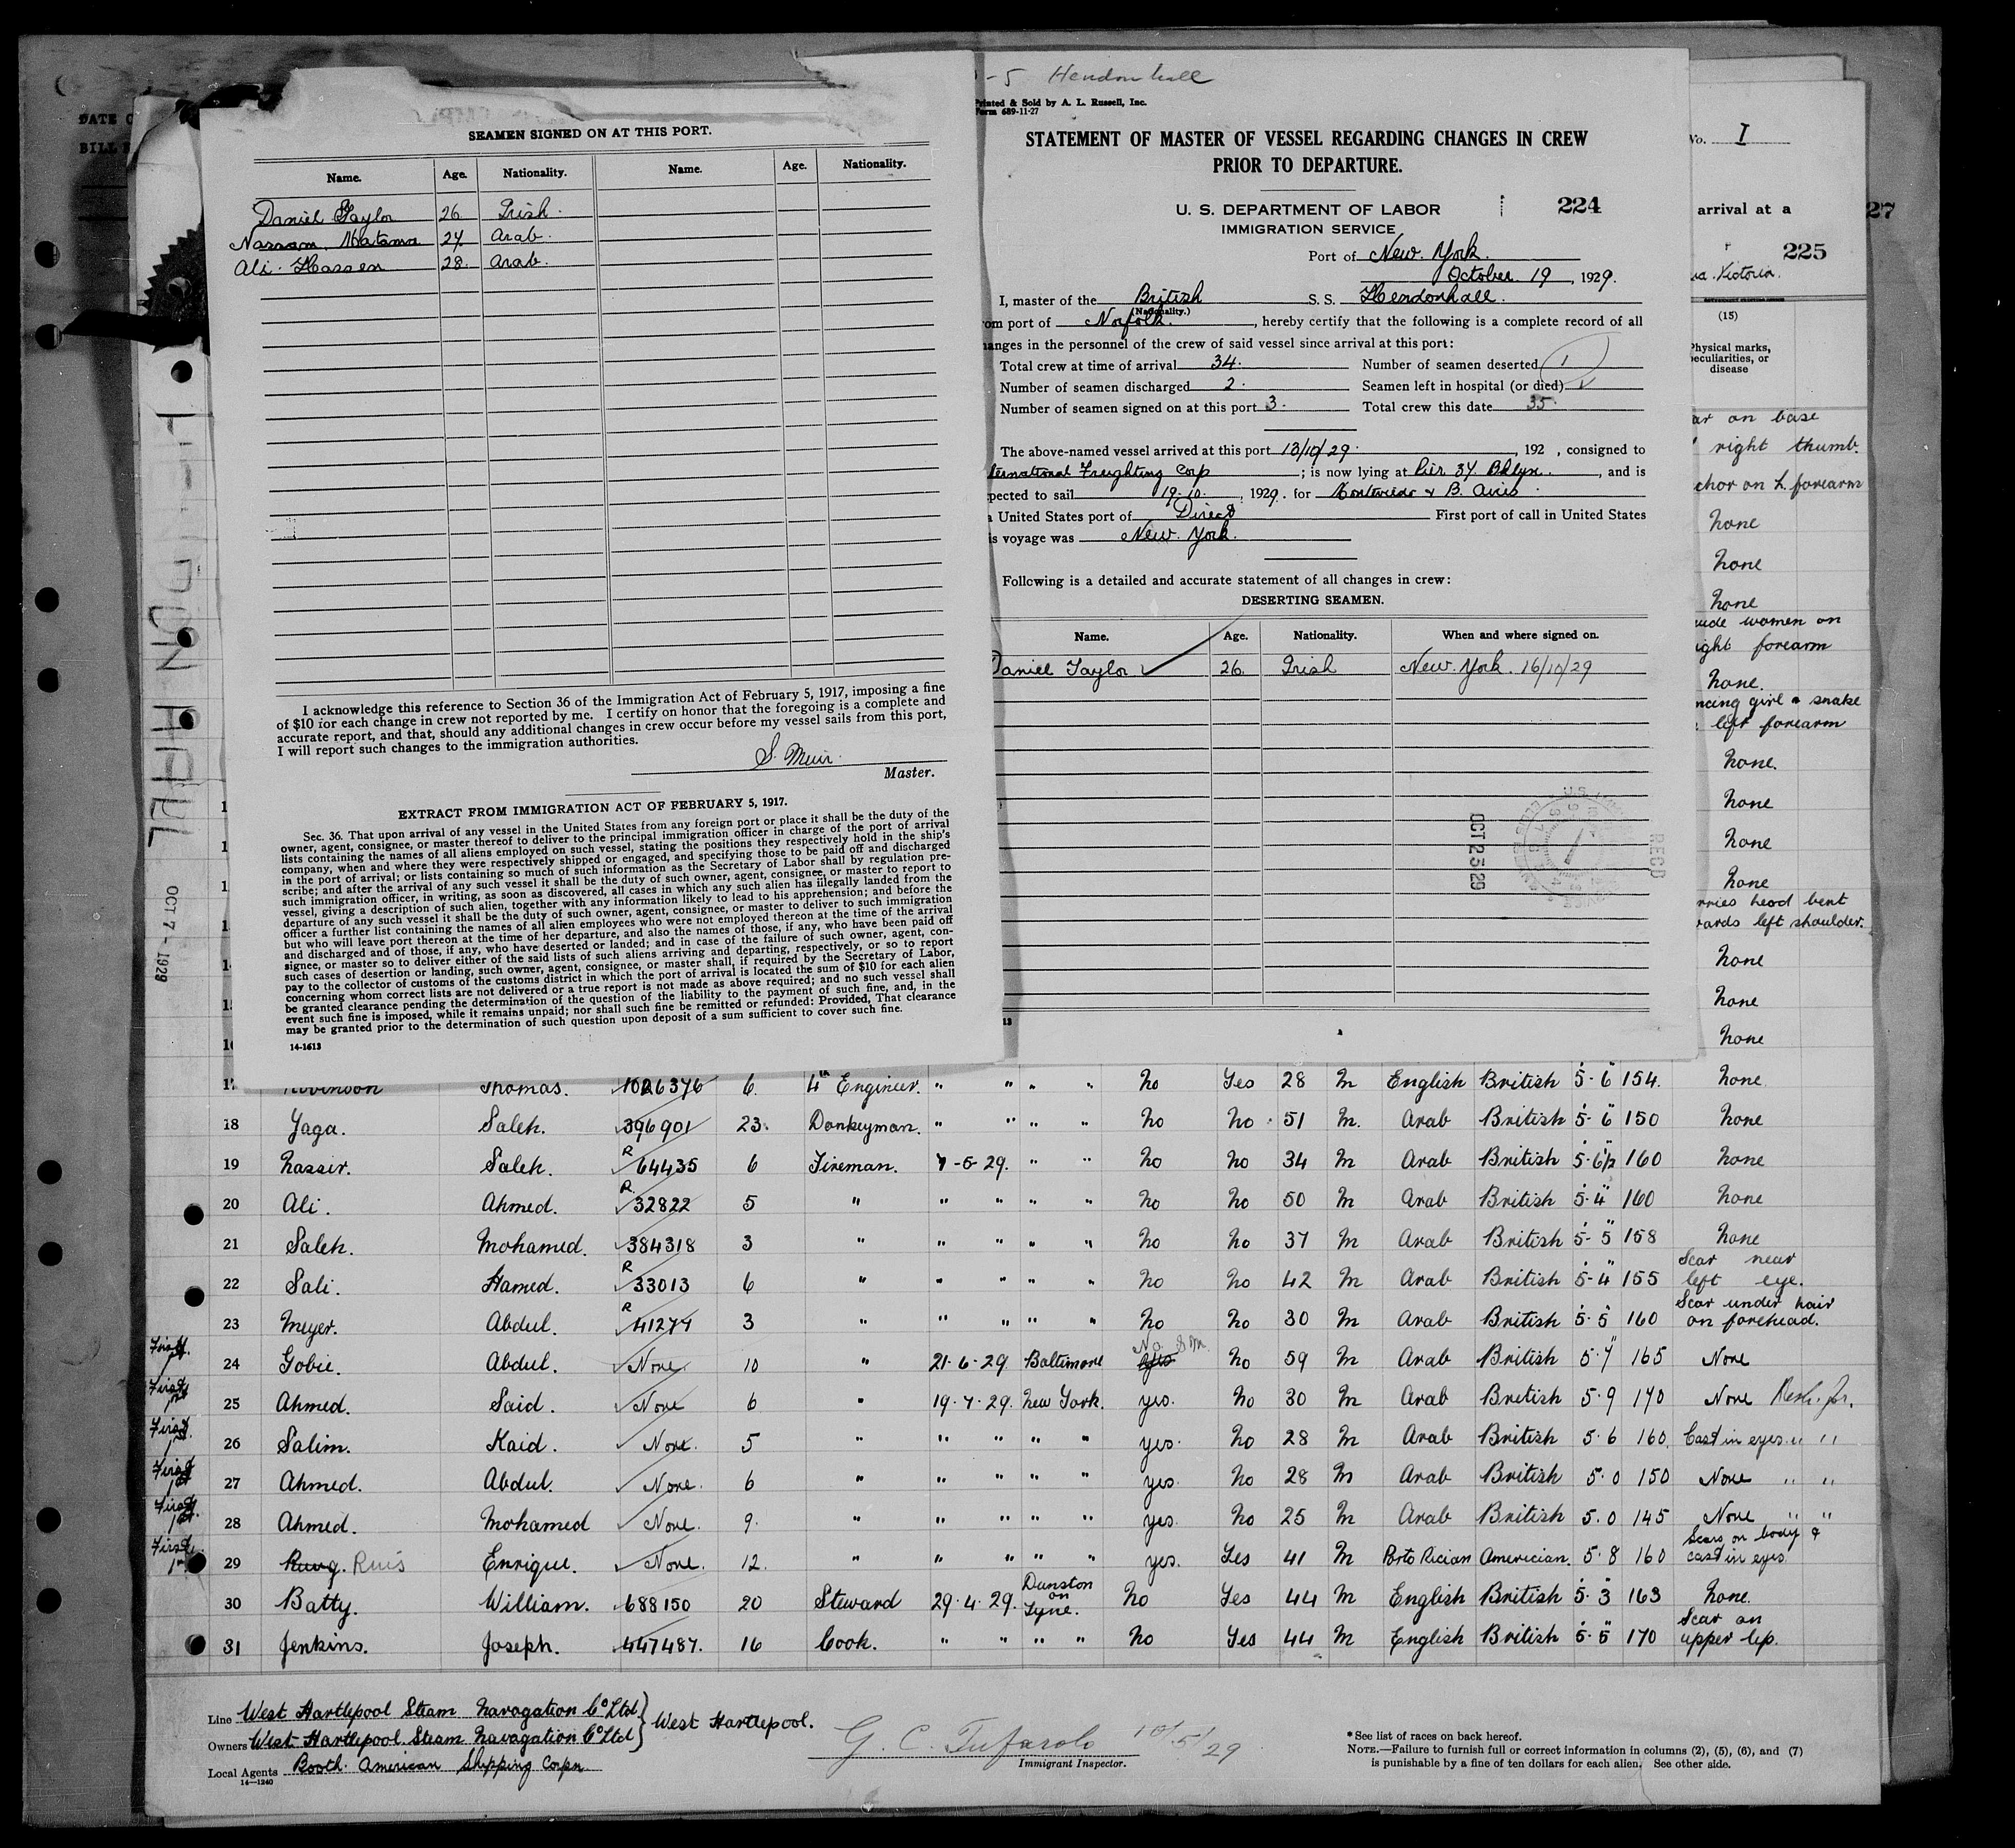 SEAMEN SIGNED ON AT THIS PORT.
Name. Age. Nationality. Name. Age. Nationality.
Daniel Taylor 26 Irish.
24 Arab.
Ali Hassen 28. Arab.
I acknowledge this reference to Section 36 of the Immigration Act of February 5, 1917, imposing a fine
of $10 for each change in crew not reported by me. I certify on honor that the foregoing is a complete and
accurate report, and that, should any additional changes in crew occur before my vessel sails from this port,
I will report such changes to the immigration authorities.
S. Muir.
Master.
EXTRACT FROM IMMIGRATION ACT OF FEBRUARY 5, 1917.
Sec. 36. That upon arrival of any vessel in the United States from any foreign port or place it shall be the duty of the
owner, agent, consignee, or master thereof to deliver to the principal immigration officer in charge of the port of arrival
lists containing the names of all aliens employed on such vessel, stating the positions they respectively hold in the ship's
company, when and where they were respectively shipped or engaged, and specifying those to be paid off and discharged
in the port of arrival; or lists containing so much of such information as the Secretary of Labor shall by regulation pre-
scribe; and after the arrival of any such vessel it shall be the duty of such owner, agent, consignee, or master to report to
such immigration officer, in writing, as soon as discovered, all cases in which any such alien has illegally landed from the
vessel, giving a description of such alien, together with any information likely to lead to his apprehension; and before the
departure of any such vessel it shall be the duty of such owner, agent, consignee, or master to deliver to such immigration
officer a further list containing the names of all alien employees who were not employed thereon at the time of the arrival
but who will leave port thereon at the time of her departure, and also the names of those, if any, who have been paid off
and discharged and of those, if any, who have deserted or landed; and in case of the failure of such owner, agent, con-
signee, or master so to deliver either of the said lists of such aliens arriving and departing, respectively, or so to report
such cases of desertion or landing, such owner, agent, consignee, or master shall, if required by the Secretary of Labor,
pay to the collector of customs of the customs district in which the port of arrival is located the sum of $10 for each alien
concerning whom correct lists are not delivered or a true report is not made as above required; and no such vessel shall
be granted clearance pending the determination of the question of the liability to the payment of such fine, and, in the
event such fine is imposed, while it remains unpaid; nor shall such fine be remitted or refunded: Provided, That clearance
may be granted prior to the determination of such question upon deposit of a sum sufficient to cover such fine.
14-1613
- 5 Hendonhall
Printed & Sold by A. L. Russell, Inc.
Form 689-11-27
STATEMENT OF MASTER OF VESSEL REGARDING CHANGES IN CREW
PRIOR TO DEPARTURE.
U. S. DEPARTMENT OF LABOR 224
IMMIGRATION SERVICE
Port of New York.
October 19, 1929.
I, master of the British S. S. Hendonhall.
(Nationality.)
om port of Norfolk, hereby certify that the following is a complete record of all
anges in the personnel of the crew of said vessel since arrival at this port:
Total crew at time of arrival 34. Number of seamen deserted 1
Number of seamen discharged 2. Seamen left in hospital (or died)
Number of seamen signed on at this port 3. Total crew this date 35.
The above-named vessel arrived at this port 13/10/29, 192 , consigned to
ternational Freighting Corp; is now lying at Pier 34 Bklyn., and is
pected to sail 19-10, 1929. for Montevideo & B. Aires
United States port of Direct First port of call in United States
is voyage was New York.
Following is a detailed and accurate statement of all changes in crew:
DESERTING SEAMEN.
Name. Age. Nationality. When and where signed on.
Daniel Taylor 26. Irish New York. 16/10/29
OCT 25 29
RECD
No. I
arrival at a
27
225
Victoria.
(15)
Physical marks,
peculiarities, or
disease
ar on base
right thumb.
chor on L. forearm
None
None
None
ude women on
ight forearm
None.
ncing girl & snake
left forearm
None.
None
None
None
rries head bent
wards left shoulder.
None
None
None
DATE O
HENDON HALL
OCT 7 - 1929
Robinson Thomas. 1026376 6. 4th Engineer. " " " " No Yes 28 M English British 5-6 154. None
18 Yaga. Saleh. 396901 23. Donkeyman. " " " " No No 51 M. Arab British 5-6 150 None
19 Nassir. Saleh. R 64435 6 Fireman. 7-5-29. " " No No 34 M Arab British 5-6½ 160 None
20 Ali. Ahmed. R 32822 5 " " " " " No No 50 M Arab British 5-4 160 None
21 Saleh. Mohamed. 384318 3 " " " " " No No 37 M Arab British 5-5 158 None
22 Sali. Hamed. R 33013 6 " " " " " No No 42 M Arab British 5-4 155 Scar near left eye.
23 Meyer. Abdul. R 41274 3 " " " " " No No 30 M Arab British 5-5 160 Scar under hair on forehead.
First 24 Gobie. Abdul. None 10 " 21-6-29 Baltimore No SM. No 59 M Arab British 5.7 165 None
First 25 Ahmed. Said. None 6 " 19-7-29. New York. yes. No 30 M Arab British 5.9 170 None
First 26 Salim. Kaid. None. 5 " " " " " yes. No 28 M Arab British 5.6 160. Cast in eyes " "
First 27 Ahmed. Abdul. None. 6 " " " " " yes. No 28 M Arab British 5.0 150 None " "
First 28 Ahmed. Mohamed None. 9. " " " " " yes. No 25 M Arab British 5.0 145 None " "
First 29 Ruis Enrique. None. 12. " " " " " yes. Yes 41 M Porto Rician Americian. 5.8 160 Scars on body & cast in eyes.
30 Batty. William. 688150 20 Steward 29-4-29. Dunston on Tyne. No Yes 44 M English British 5-3 163 None.
31 Jenkins. Joseph. 447487. 16 Cook. " " " " No Yes 44 M English British 5-5 170 Scar on upper lip.
Line West Hartlepool Steam Navagation Co Ltd
Owners West Hartlepool Steam Navagation Co Ltd } West Hartlepool.
Local Agents Booth American Shipping Corpn.
14-1240
G. C. Tufarolo 10/5/29
Immigrant Inspector.
*See list of races on back hereof.
NOTE.—Failure to furnish full or correct information in columns (2), (5), (6), and (7)
is punishable by a fine of ten dollars for each alien. See other side.